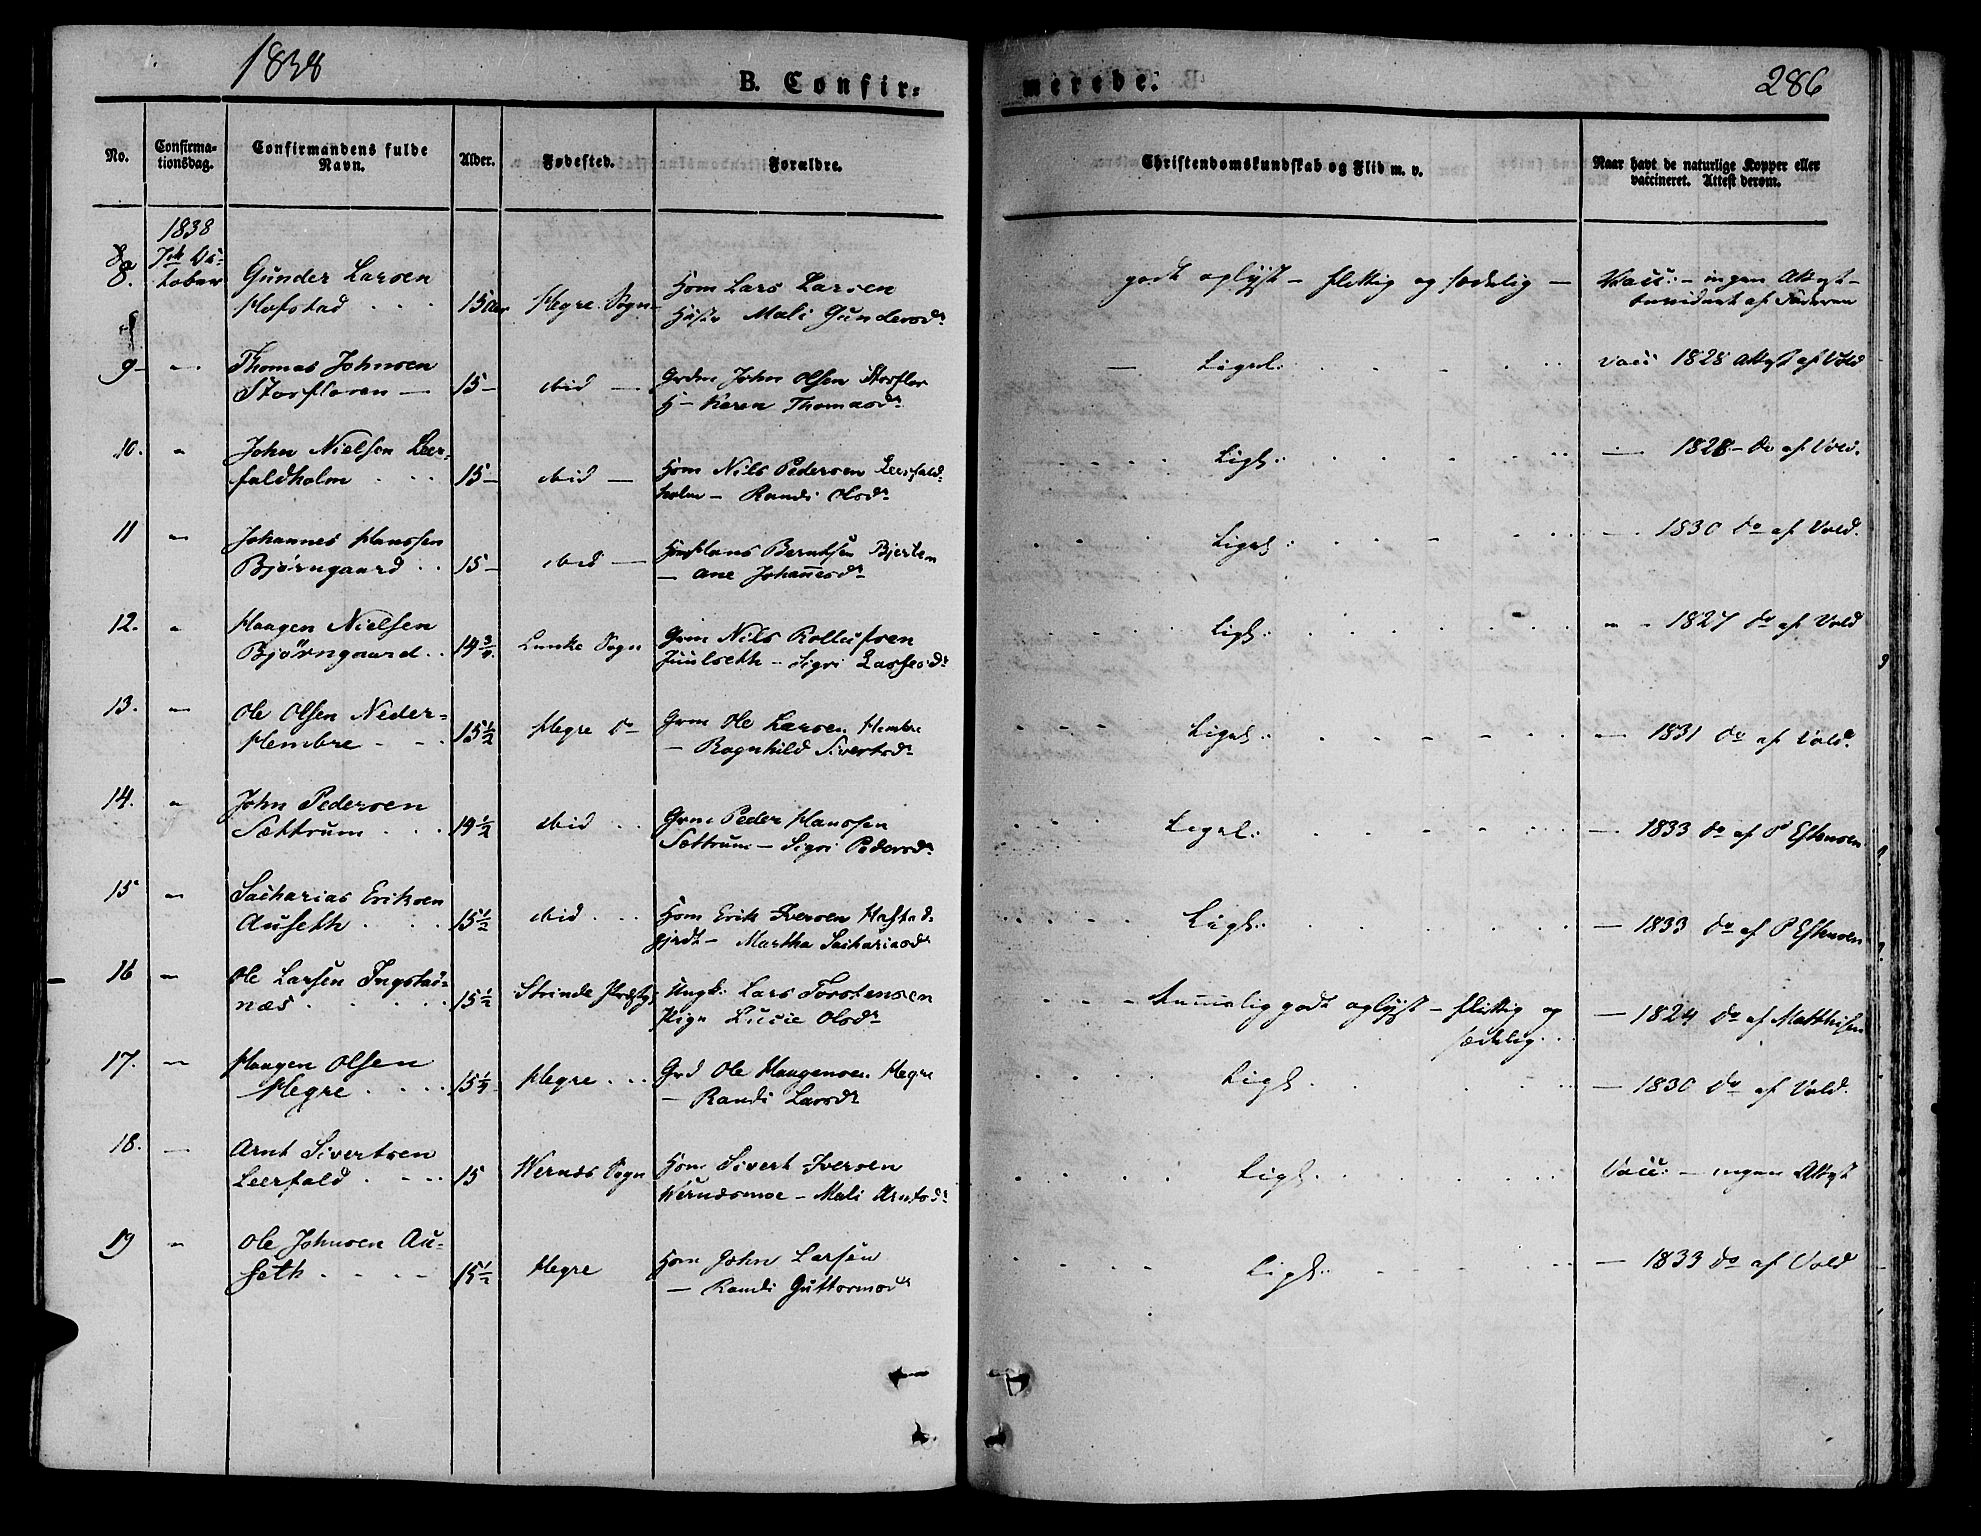 1838
B. Confir-
merede.
286
No.
Confirma-
tionsdag.
Confirmandens fulde
Navn.
Alder.
Fødested.
Forældre.
Christendomskundskab og Flid m. v.
Naar havt de naturlige Kopper eller
vaccineret. Attest derom.
1838
8. October Gunder Larsen
Hofstad 15 Aar Hegre Sogn
Lars Larsen
Mali Gundersdr
godt oplyst – flittig og sædelig – Vacc: – ingen Attest –
af Faderen
9 – Thomas Johnsen
Storfloren – 15 – ibid –
John Olsen Storflor
H – Karen Thomasdr
– Ligel: vacc 1828 Attest af Vold
10. " John Nielsen Leer-
faldholm 15 – ibid –
Hom Nils Pedersen Leerfald-
holm – Randi Olsdr
Ligel: 1828 – do af Vold.
11 " Johannes Hanssen
Bjørngaard 15 – ibid –
Hom Hans Berntsen
– Ane Johannesdr
Ligel: – 1830 do af Vold.
12. " Haagen Nielsen
Bjørngaard 14 3/4 Lunke Sogn
Nils
– Sigri Larsesdr
Ligel: " – 1827 do af Vold
13. – Ole Olsen Neder-
Hembre 15 1/2 Hegre do
Ole Larsen Hembre
– Ragnhild Sivertsdr
Ligel: – 1831 do af Vold.
14. " John Pedersen
Sættrum 14 1/2 ibid
Peder Hanssen
Sættrum – Sigri Pedersdr
Ligel: – 1833 do af P Estensen
15 – Sacharias Eriksen
Auseth 15 1/2 ibid
Hom Erik Iversen
– Martha Sachariasdr
Ligel: – 1833 do af P Estensen
16 – Ole Larsen Ingstad-
næs 15 1/2 Strinde Præstg.
Ungk: Lars Torstensen
Pige Lucie Olsdr
– temmelig godt oplyst – flittig og
sædelig
– 1824 do af Matthisen
17. – Haagen Olsen
Hegre 15 1/4 Hegre
Ole Haagensen Hegre
– Randi Larsdr
Ligel. – 1830 do af Vold.
18. – Arnt Sivertsen
Leerfald 15 Wernæs Sogn
Hom Sivert Iversen
Wernæsmoe – Mali Arntsdr
Ligel. Vacc: – ingen Attest
19 " Ole Johnsen Au-
seth 15 1/2 Hegre
Hom John Larsen
– Randi Guttormsdr
Ligel: – 1833 do af Vold